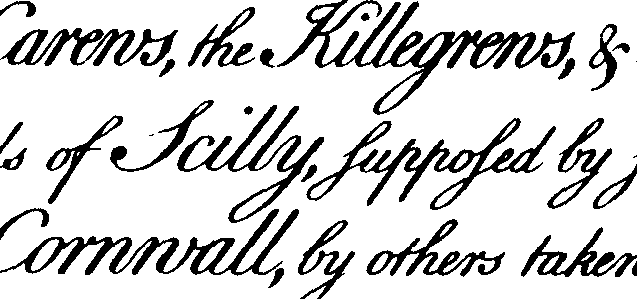 Carews, the Killegrews, &
of Scilly, ſuppoſed by
Cornwall, by others taken